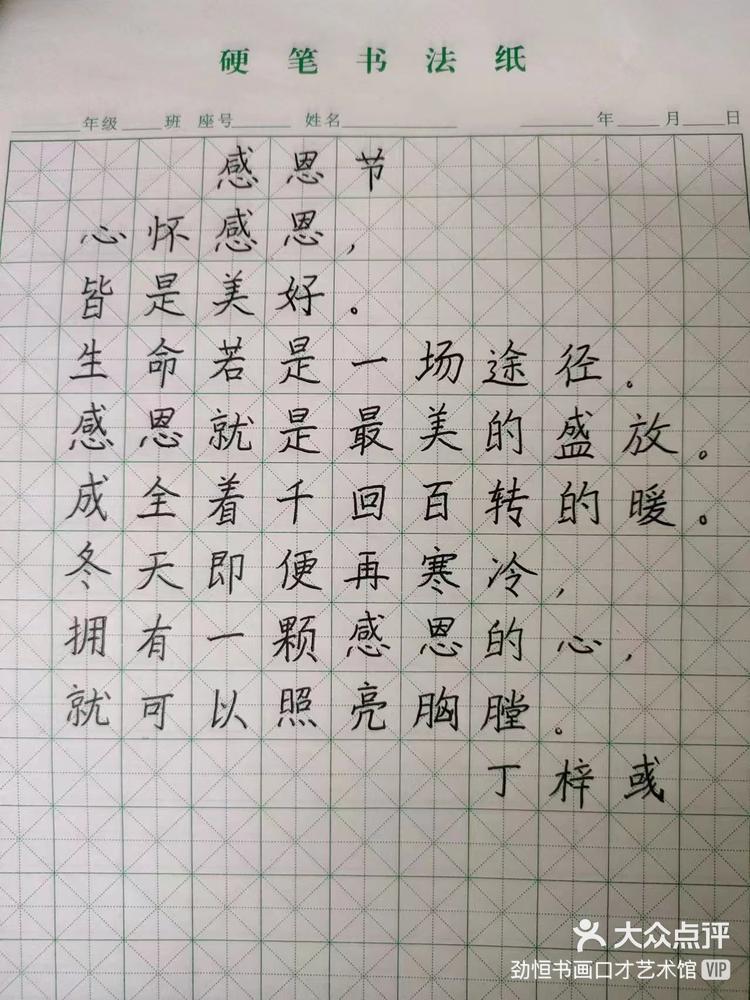 硬笔书法纸
年级 班 座号 姓名 年 月 日
感恩节
心怀感恩,
皆是美好。
生命若是一场途径。
感恩就是最美的盛放。
成全着千回百转的暖。
冬天即便再寒冷,
拥有一颗感恩的心,
就可以照亮胸膛。
丁梓彧
大众点评
劲恒书画口才艺术馆 VIP